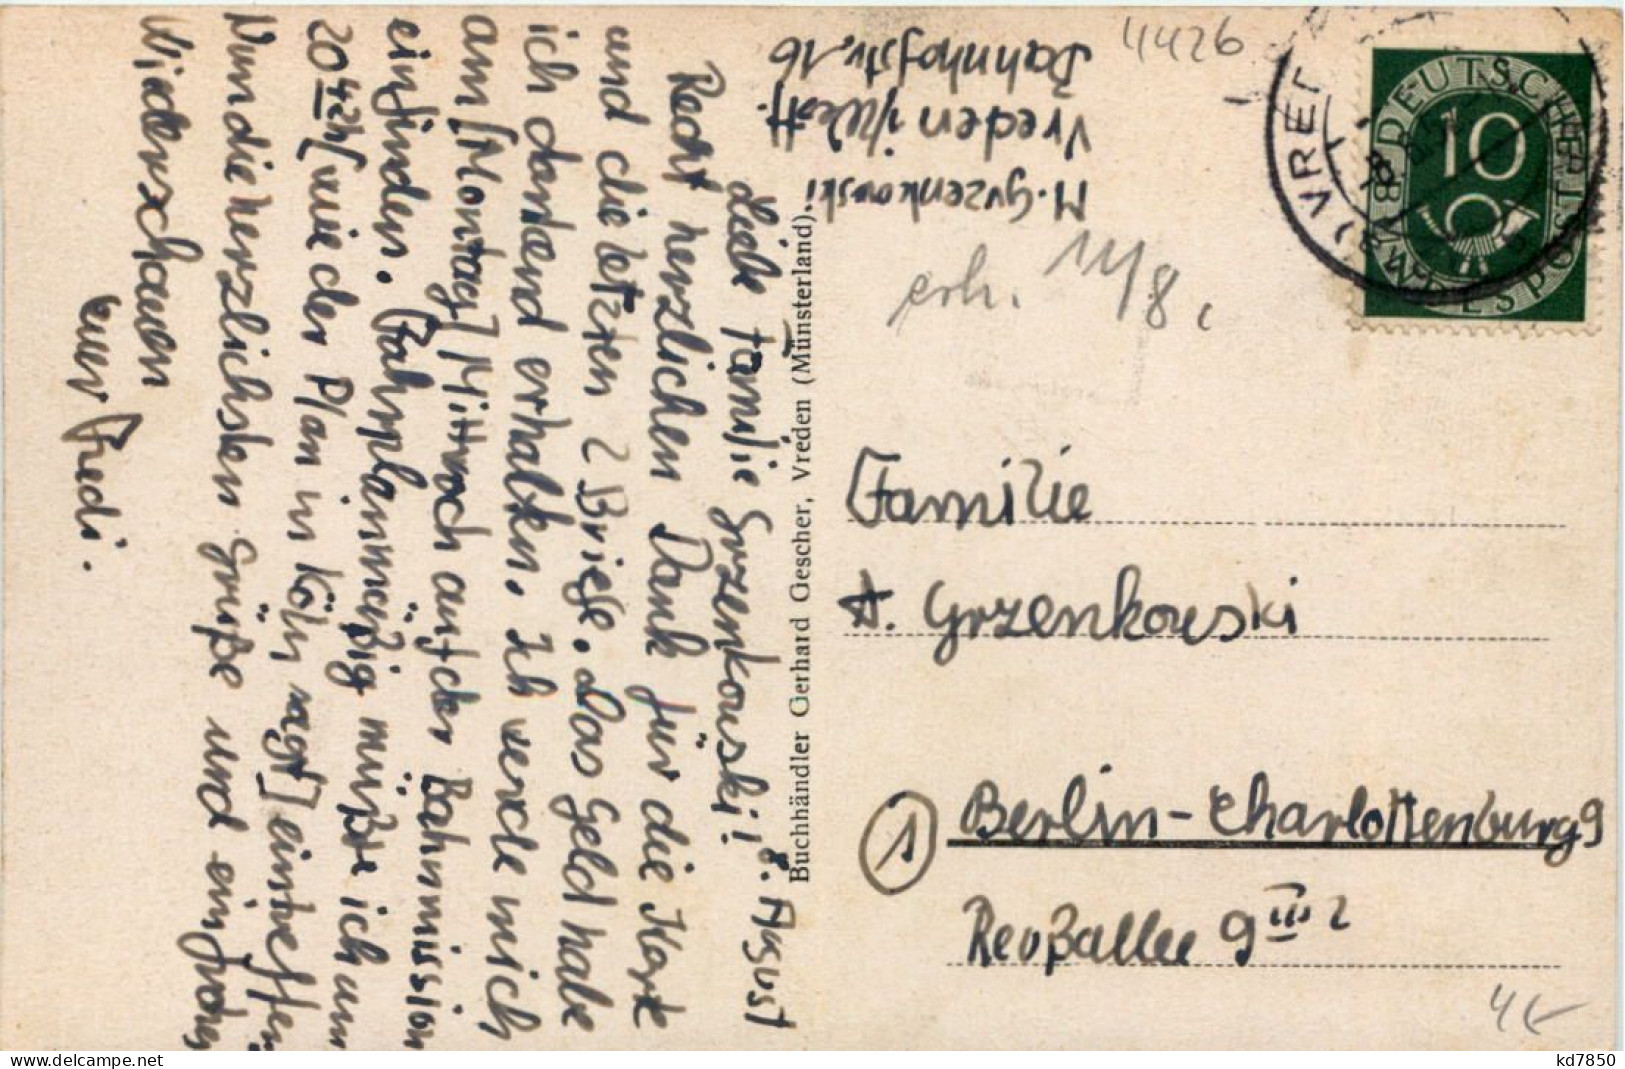 8. August
Liebe Familie Grzenkowski!
Recht herzlichen Dank für die Karte
und die letzten 2 Briefe. Das Geld habe
ich dankend erhalten. Ich werde mich
am [Montag] Mittwoch auf der Bahnmission
einfinden. Fahrplanmäßig müßte ich um
20 42h [wie der Plan in Köln sagt] eintreffen
Nun die herzlichsten Grüße und ein frohes
Wiederschauen
euer Friedi.
Buchhändler Gerhard Gescher, Vreden (Münsterland).
M. Grzenkowski
Vreden i/Westf.
Bahnhofstr. 16
4426
erh. 11/8
DEUTSCHE BUNDESPOST
10
VREDEN
Familie
A. Grzenkowski
1 Berlin-Charlottenburg 9
Reußallee 9 III 2
4
kd7850